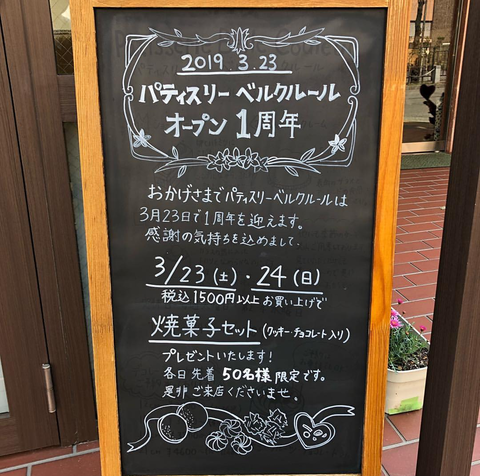 2019.3.23
パティスリー ベルクルール
オープン 1周年
おかげさまでパティスリーベルクルールは
3月23日で1周年を迎えます。
感謝の気持ちを込めまして、
3/23(土)・24(日)
税込1500円以上お買い上げで
焼菓子セット(クッキー・チョコレート入り)
プレゼントいたします!
各日先着50名様限定です。
是非ご来店くださいませ。